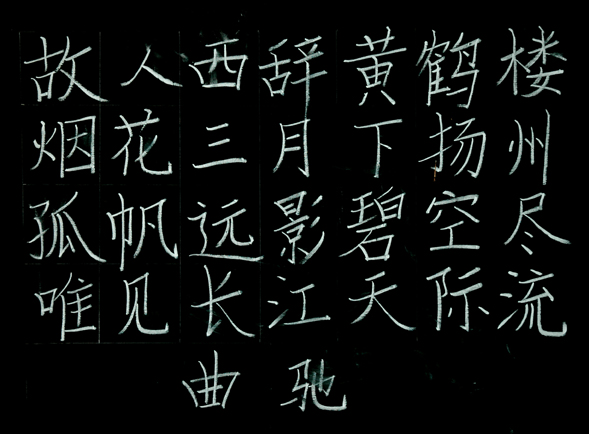 故人西辞黄鹤楼
烟花三月下扬州
孤帆远影碧空尽
唯见长江天际流
曲驰